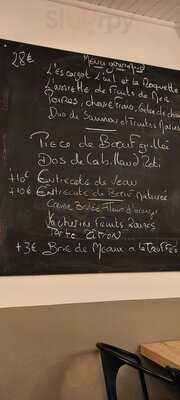 28€
Menu
L'Escargot et la Roquette
L'assiette de Fruits de Mer
Poires, chèvre franc, Gelée de
Duo de Saumon et Fruits
Pièce de Bœuf grillée
Dos de Cabillaud Roti
+10€ Entrecote de Veau
+10€ Entrecote de Bœuf Maturée
Creme Brulée Fleur d'oranger
Vacherin Fruits Rouges
Tarte Citron
+3€ Brie de Meaux a la Truffes